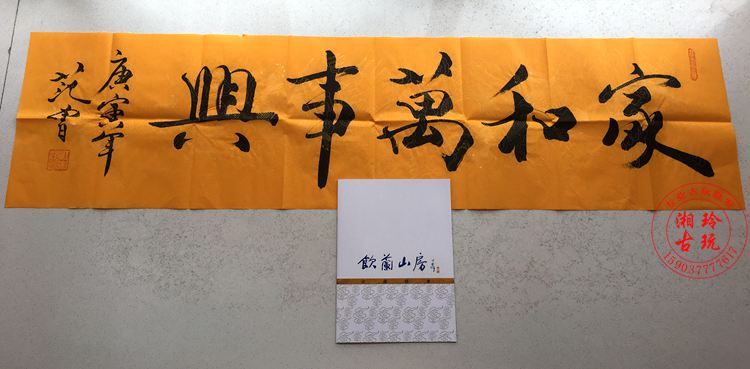 家和萬事興
庚寅年
范曾
飲蘭山房
湘玲
古玩
15903777617